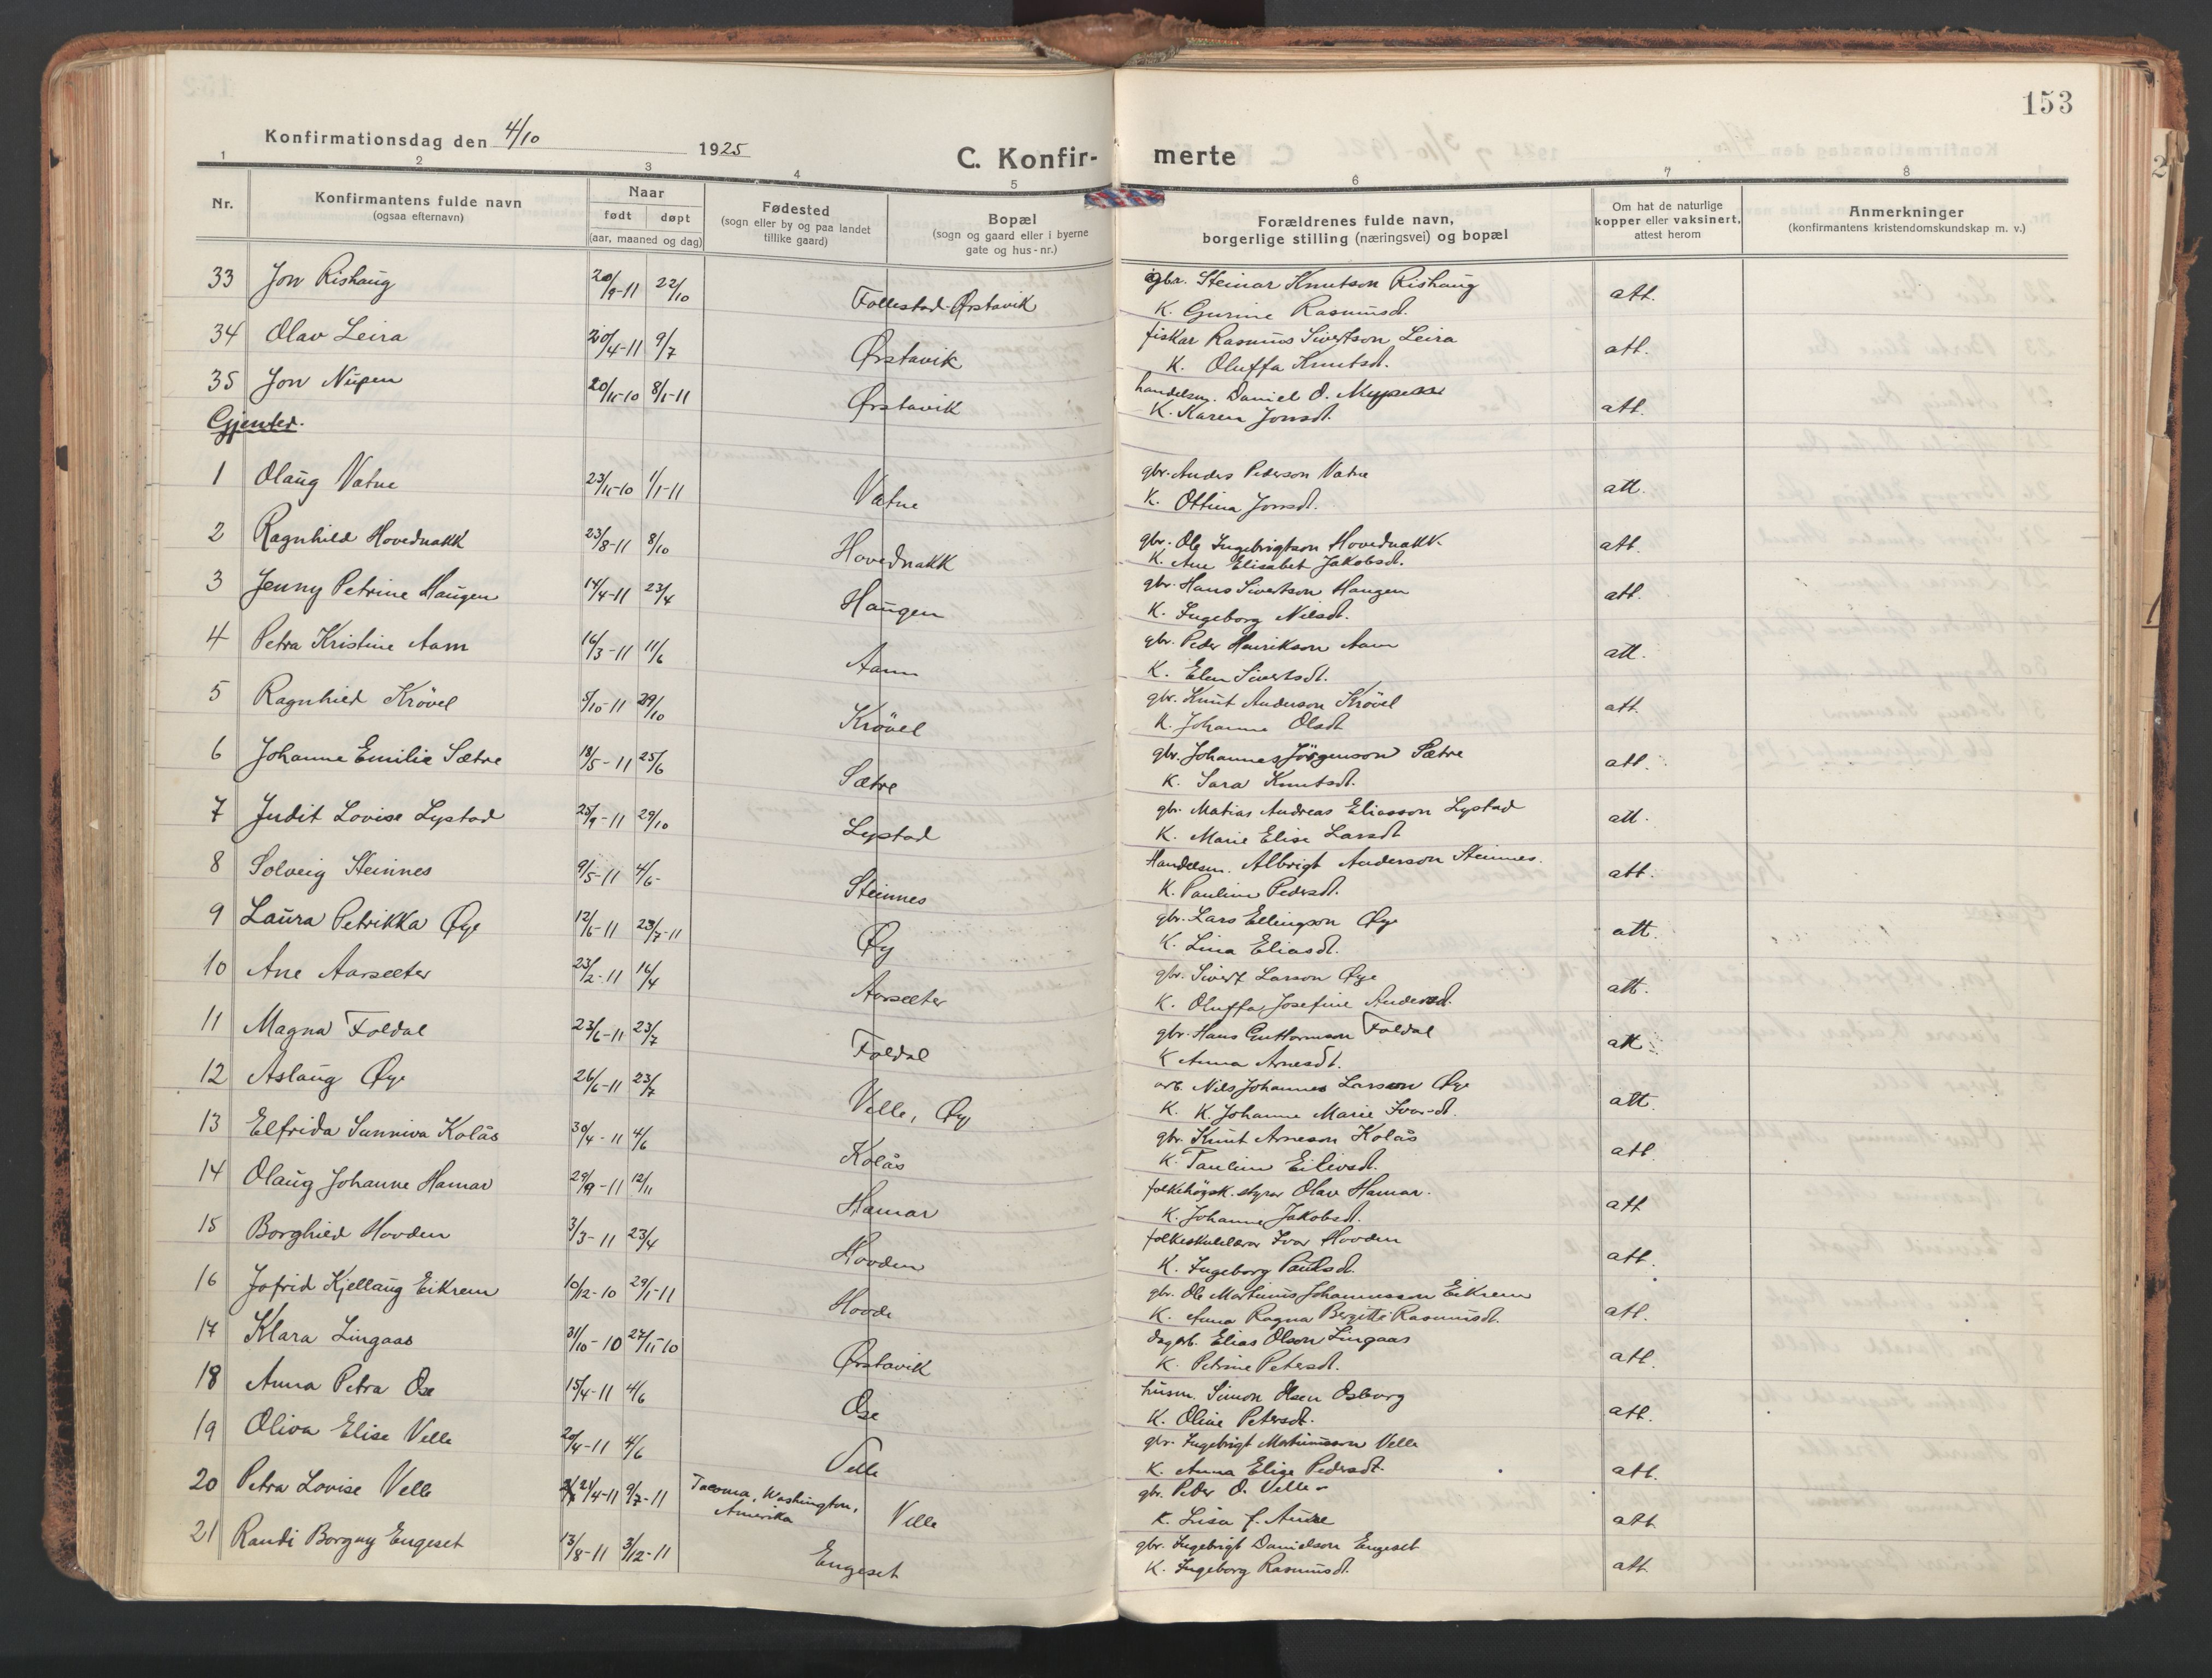 153
Konfirmationsdag den 4/10 1925
C. Konfir- merte
1 2 3 4 5 6 7 8
Nr.
Konfirmantens fulde navn
(ogsaa efternavn)
Naar
født døpt
(aar, maaned og dag)
Fødested
(sogn eller by og paa landet
tillike gaard)
Bopæl
(sogn og gaard eller i byerne
gate og hus-nr.)
Forældrenes fulde navn,
borgerlige stilling (næringsvei) og bopæl
Om hat de naturlige
kopper eller vaksinert,
attest herom
Anmerkninger
(konfirmantens kristendomskundskap m. v.)
33 Jon Rishaug 20/9-11 22/10 Follestad-Ørstavik gbr. Steinar Knutson Rishaug att.
K. Gurine Rasmusd.
34 Olav Leira 20/4-11 9/7 Ørstavik fiskar Rasmus Sivertson Leira att.
K. Oluffa Knutsd.
35 Jon Nupen 20/11-10 8/1-11 Ørstavik handelsm. Daniel O. Nupen att.
K. Karen Jonsd.
Gjenter.
1 Olaug Vatne 23/11-10 1/1-11 Vatne gbr. Anders Pederson Vatne att.
K. Ottina Jonsd.
2 Ragnhild Hovednakk 23/8-11 8/10 Hovednakk gbr. Ole Ingebrigtson Hovednakk att.
K. Ane Elisabet Jakobsd.
3 Jenny Petrine Haugen 14/4-11 23/4 Haugen gbr. Hans Sivertson Haugen att.
K. Ingeborg Nilsd.
4 Petra Kristine Aam 16/3-11 11/6 Aam gbr. Peder Henrikson Aam att.
K. Elen Sivertsd.
5 Ragnhild Krövel 5/10-11 29/10 Krövel gbr. Knut Anderson Krövel att.
K. Johanne Olsd.
6 Johanne Emilie Sætre 18/5-11 25/6 Sætre gbr. Johannes Jörgenson Sætre att.
K. Sara Knutsd.
7 Judit Lovise Lystad 25/9-11 29/10 Lystad gbr. Matias Andreas Eliasson Lystad att.
K. Marie Elise Larsd.
8 Solveig Steinnes 9/5-11 4/6- Steinnes Handelsm. Albrigt Anderson Steinnes. att.
K. Pauline Pedersd.
9 Laura Petrikka Øye 12/6-11 23/7-11 Øy gbr. Lars Ellingson Øye att.
K. Lina Eliasd.
10 Ane Aarseter 23/2-11 16/4 Aarseter gbr. Sivert Larson Øye att.
K. Oluffa Josefine Andersd.
11 Magna Foldal 23/6-11 23/7 Foldal gbr. Hans Guttormson Foldal att.
K Anna Arnesd.
12 Aslaug Øye 26/6-11 23/7 Velle, Øy arb. Nils Johannes Larsson Øye att.
K. K. Johanne Marie Ivarsd.
13 Elfrida Sunniva Kolås 30/4-11 4/6 Kolås gbr. Knut Arneson Kolås att.
K. Pauline Eilivsd.
14 Olaug Johanne Hamar 29/9-11 12/11 Hamar folkehögsk. styrar Olav Hamar. att
K. Johanne Jakobsd.
15 Borghild Hovden 3/3-11 23/4 Hovden folkeskulelærar Ivar Hovden att.
K. Ingeborg Paulsd.
16 Jofrid Kjellaug Eikrem 10/12-10 29/1-11 Hovde gbr. Ole Martinus Johannesson Eikrem att.
K. Anna Ragna Bergitte Rasmusd.
17 Klara Lingaas 31/10-10 27/11-10 Ørstavik dagarb. Elias Olson Lingaas att.
K. Petrine Petersd.
18 Anna Petra Ose 15/4-11 4/6 Ose husm. Simon Olsen Osborg att.
K. Oline Petersd.
19 Oliva Elise Velle 20/4-11 4/6 Velle gbr. Ingebrigt Martinusson Velle att.
K. Anna Elise Pedersd.
20 Petra Lovise Velle 21/4-11 9/7-11 Tacoma, Washington, Amerika Velle gbr. Peder O. Velle att.
K. Lisa f. Aure
21 Randi Borgny Engeset 13/8-11 3/12-11 Engeset gbr. Ingebrigt Danielson Engeset att.
K. Ingeborg Rasmusd.